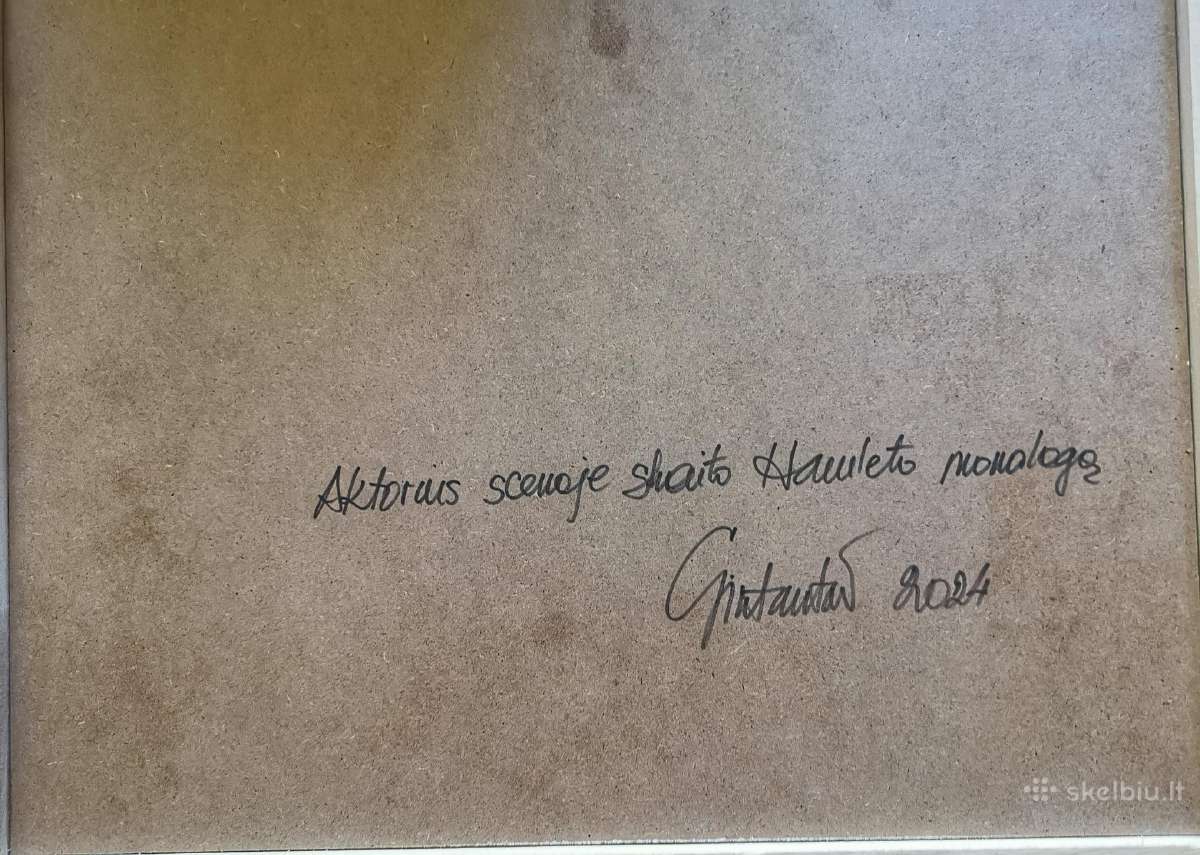 Aktorius scenoje skaito Hamleto monologą
Gintautas 2024
skelbiu.lt